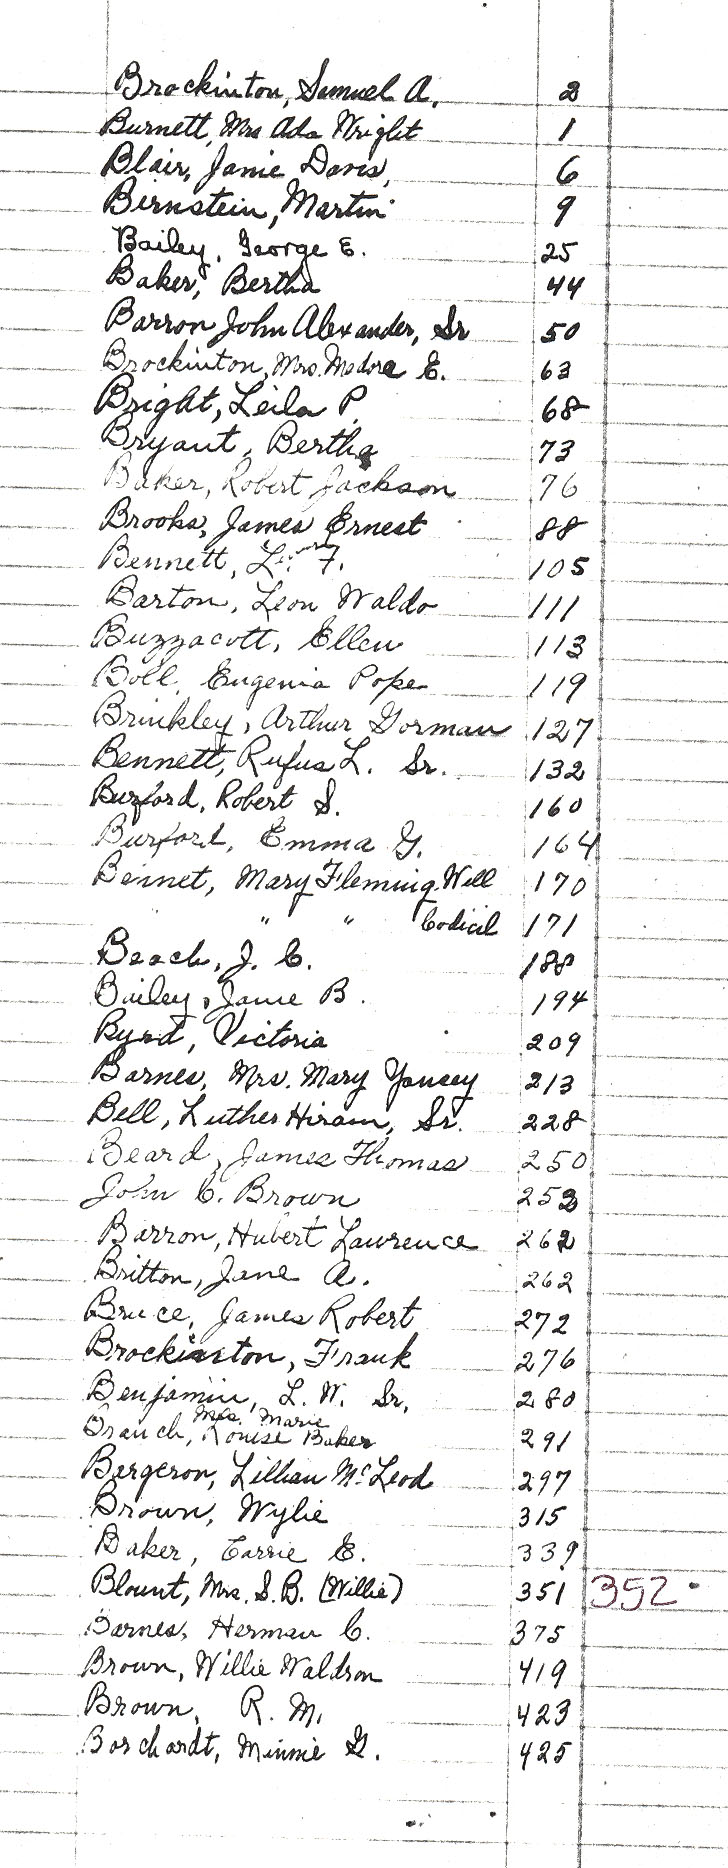 Brockinton, Samuel A. 2
Burnett, Mrs Ada Wright 1
Blair, Janie Davis, 6
Bernstein, Martin 9
Bailey, George E. 25
Baker, Bertha 44
Barron John Alexander, Sr 50
Brockinton, Mrs. Medora E. 63
Bright, Leila P. 68
Bryant, Bertha 73
Baker, Robert Jackson 76
Brooks, James Ernest 88
Bennett, F. 105
Barton, Leon Waldo 111
Buzzacott, Ellen 113
Boll, Eugenia Pope 119
Brinkley, Arthur Gorman 127
Bennett, Rufus L. Sr. 132
Burford, Robert S. 160
Burford, Emma G. 164
Bennet, Mary Fleming. Will 170
" " " Codicil 171
Beach, J. C. 188
Bailey, Janie B. 194
Byrd, Victoria 209
Barnes, Mrs. Mary Yancey 213
Bell, Luther Hiram, Sr. 228
Beard, James Thomas 250
John C. Brown 253
Barron, Hubert Lawrence 262
Britton, Jane A. 262
Bruce, James Robert 272
Brockinton, Frank 276
Benjamin, L. W. Sr. 280
Mrs. Marie
Branch, Louise Baker 291
Bergeron, Lillian McLeod 297
Brown, Wylie 315
Baker, Carrie E. 339
Blount, Mrs. S. B. (Willie) 351 352
Barnes, Herman C. 375
Brown, Willie Waldron 419
Brown, R. M. 423
Borchardt, Minnie G. 425